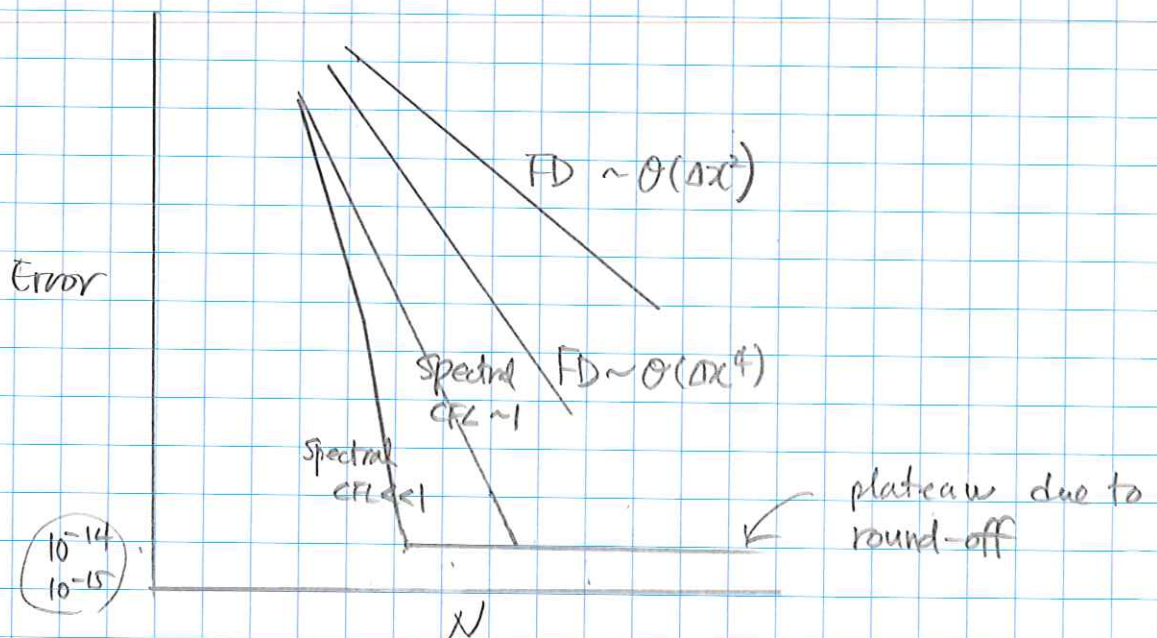 FD ~ O(Δx²)
Error
Spectral
CFL ~1
FD ~ O(Δx⁴)
Spectral
CFL <<1
plateau due to
round-off
10⁻¹⁴
10⁻¹⁵
N